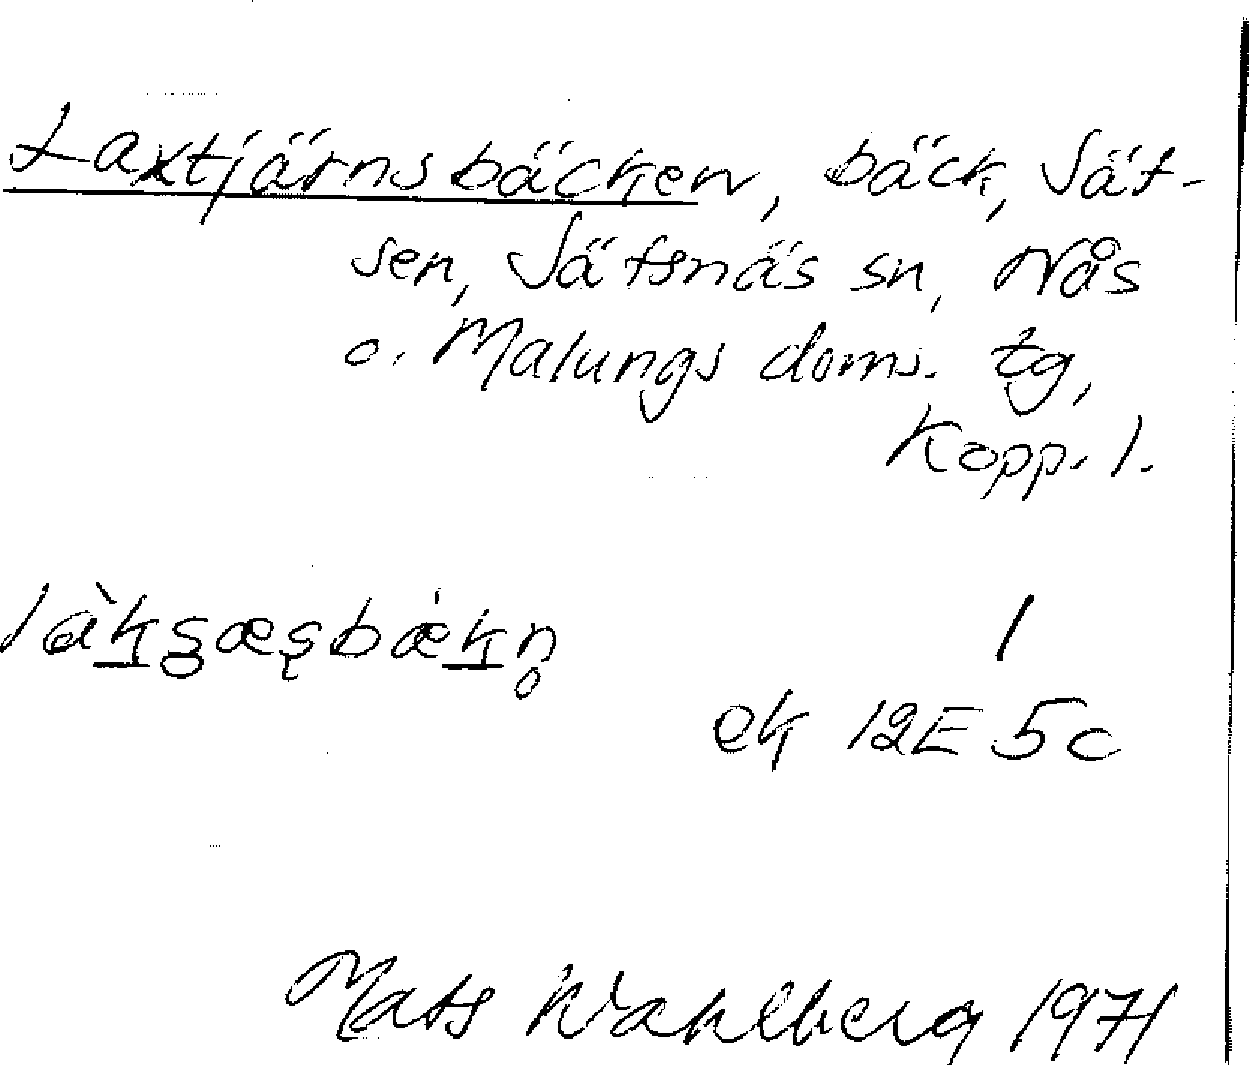 Laxtjärnsbäcken, bäck, Sät-
sen, Sätsnäs sn, Nås
o. Malungs doms. tg,
Kopp. l.
1
ek 12E 5c
Mats Wahlberg 1971